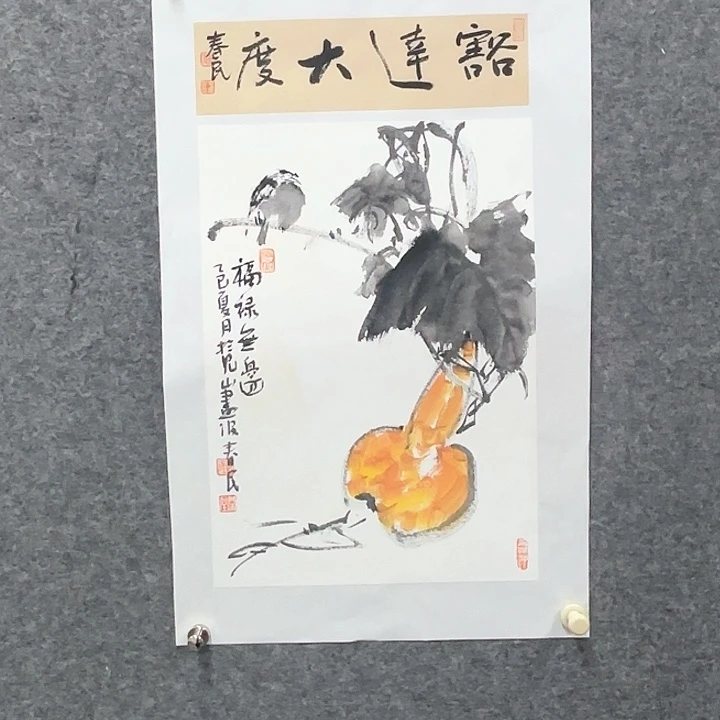 豁達大度
春民
福祿無邊
乙巳夏月於見山畫假春民